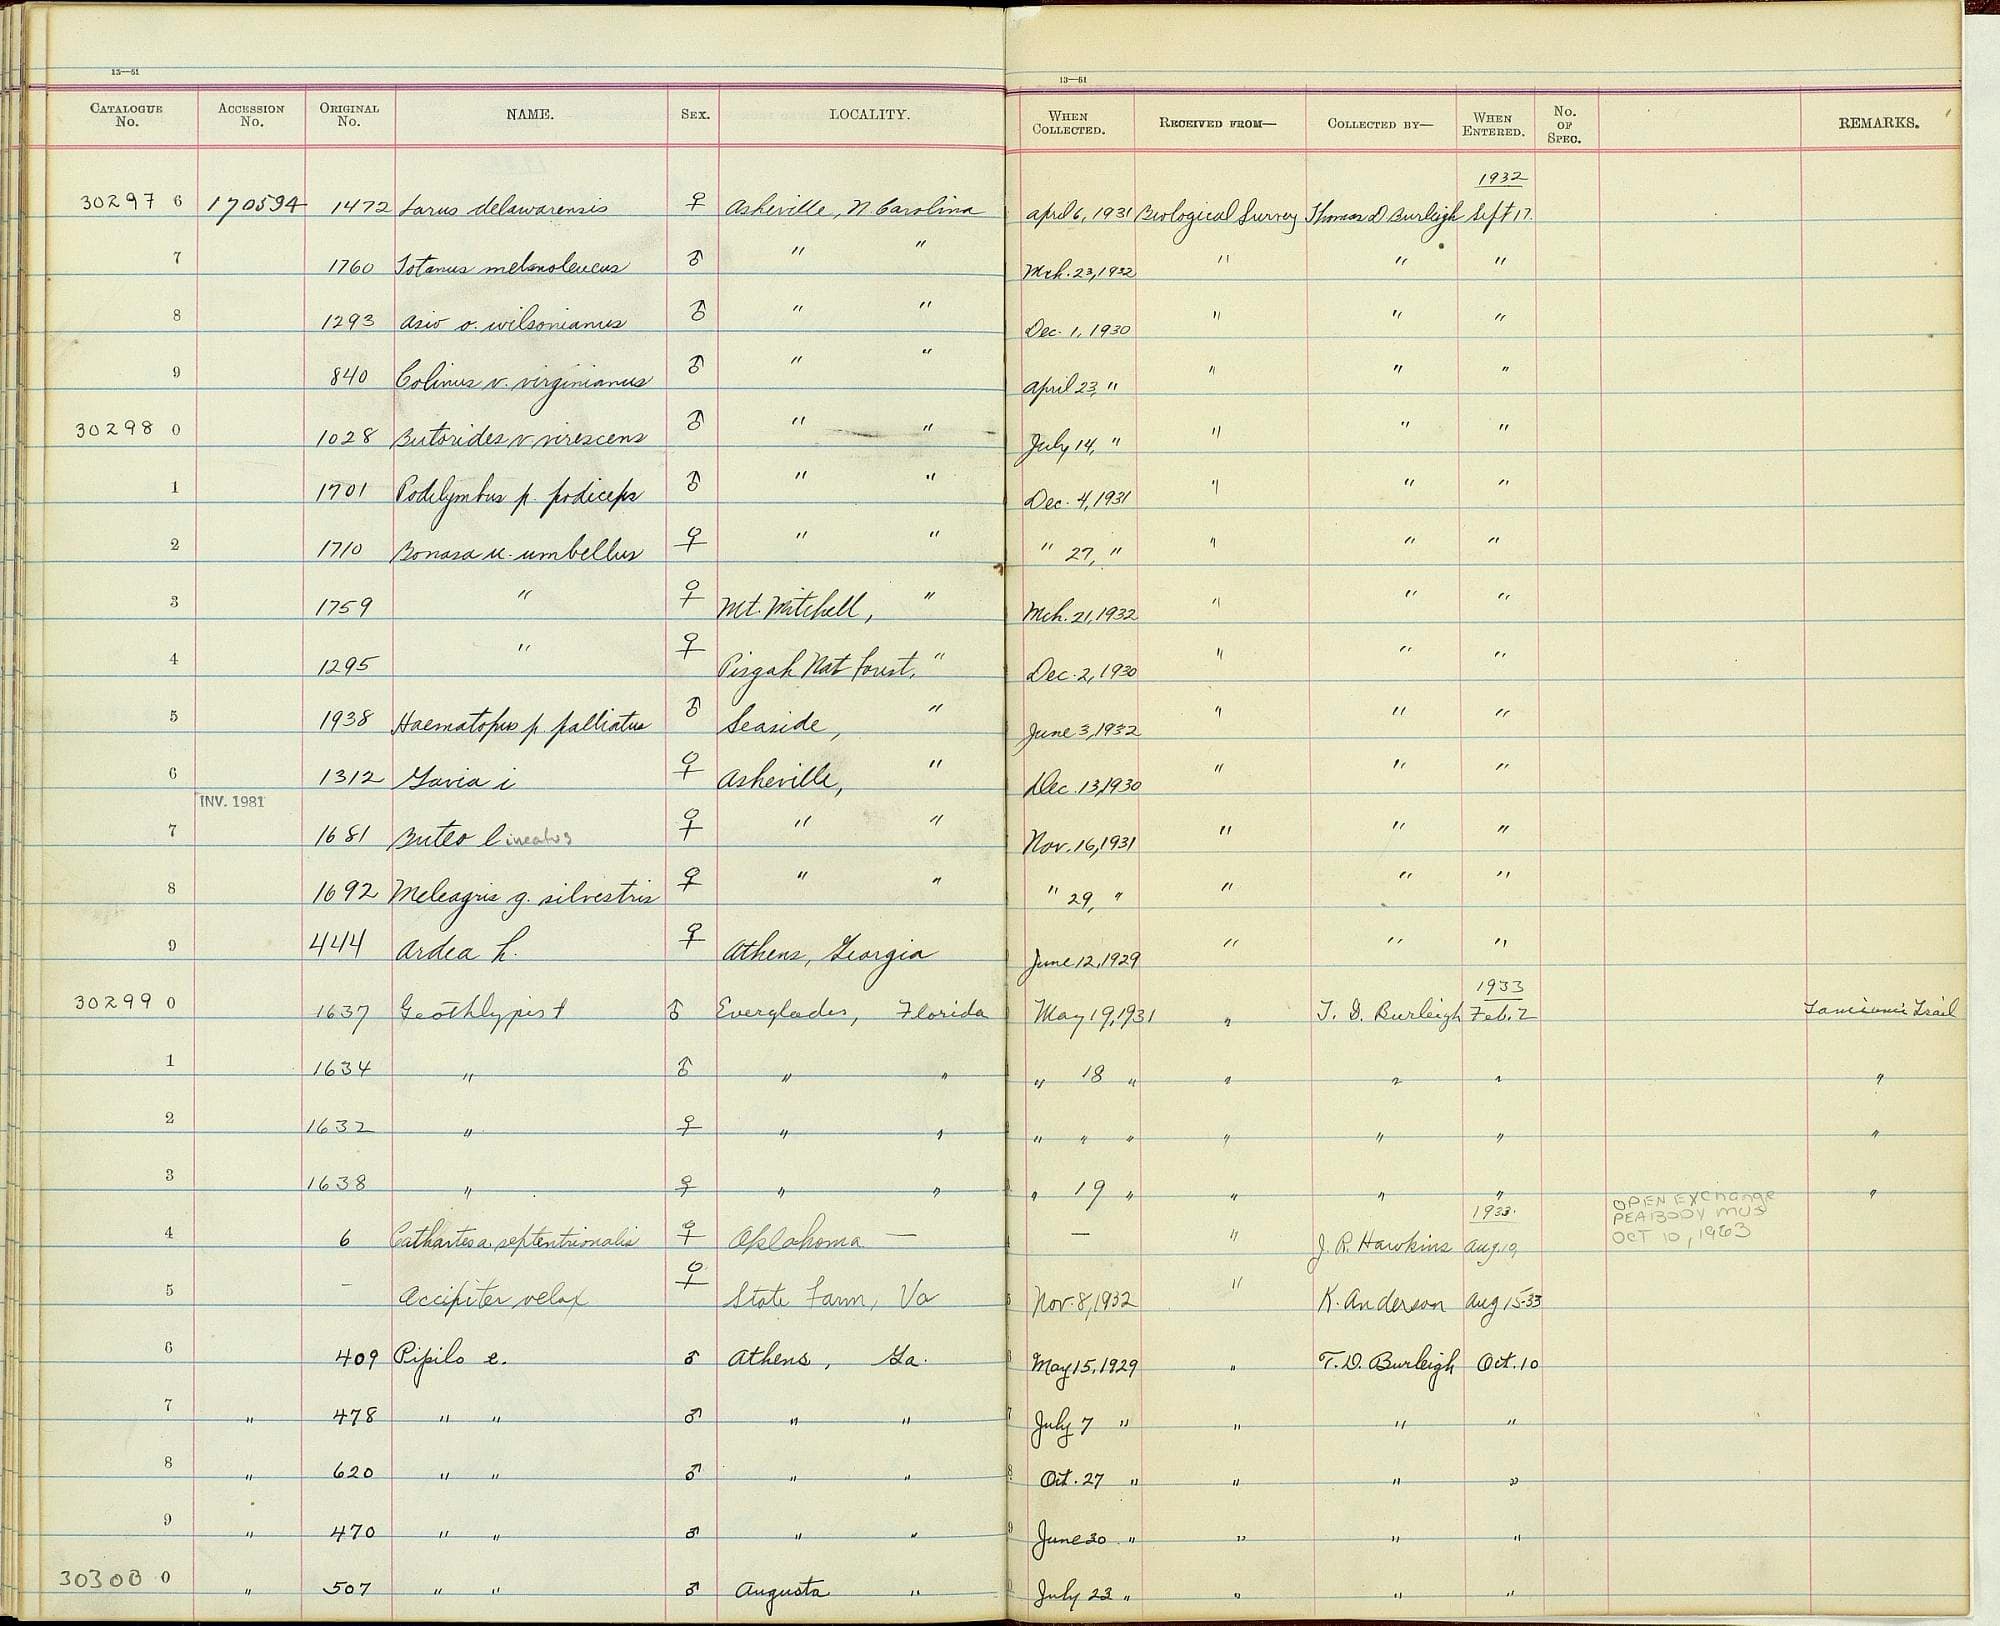 13—61
13—61
CATALOGUE No. ACCESSION No. ORIGINAL No. NAME. SEX. LOCALITY. WHEN COLLECTED. RECEIVED FROM— COLLECTED BY— WHEN ENTERED. No. OF SPEC. REMARKS.
1932
30297 6 170594 1472 Larus delawarensis ♀ Asheville, N. Carolina April 6, 1931 Biological Survey Thomas D. Burleigh Sept 17.
7 1760 Totanus melanoleucus ♂ " " Mch. 23, 1932 " " "
8 1293 Asio o. wilsonianus ♂ " " Dec. 1, 1930 " " "
9 840 Colinus v. virginianus ♂ " " April 23, " " " "
30298 0 1028 Butorides v. virescens ♂ " " July 14, " " " "
1 1701 Podilymbus p. podiceps ♂ " " Dec. 4, 1931 " " "
2 1710 Bonasa u. umbellus ♀ " " " 27, " " " "
3 1759 " ♀ Mt. Mitchell, " Mch. 21, 1932 " " "
4 1295 " ♀ Pisgah Nat forest, " Dec. 2, 1930 " " "
5 1938 Haematopus p. palliatus ♂ Seaside, " June 3, 1932 " " "
6 1312 Gavia i ♀ Asheville, " Dec. 13, 1930 " " "
INV. 1981
7 1681 Buteo lineatus ♀ " " Nov. 16, 1931 " " "
8 1692 Meleagris g. silvestris ♀ " " " 29, " " " "
9 444 Ardea h. ♀ Athens, Georgia June 12, 1929 " " "
1933
30299 0 1637 Geothlypis t ♂ Everglades, Florida May 19, 1931 " T. D. Burleigh Feb. 2 Tamiami Trail
1 1634 " ♂ " " " 18 " " " " "
2 1632 " ♀ " " " " " " " " "
3 1638 " ♀ " " " 19 " " " " "
1933.
OPEN EXChange
PEABODY MUS
OCT 10, 1963
4 6 Cathartes a. septentrionalis ♀ Oklahoma — — " J. R. Hawkins Aug. 19
5 - Accipiter velox ♀ State Farm, Va Nov. 8, 1932 " K. Anderson Aug 15-33
6 409 Pipilo e. ♂ Athens, Ga. May 15, 1929 " T. D. Burleigh Oct. 10
7 " 478 " " ♂ " " July 7 " " " "
8 " 620 " " ♂ " " Oct. 27 " " " "
9 " 470 " " ♂ " " June 30 " " " "
30300 0 " 507 " " ♂ Augusta " July 23 " " " "